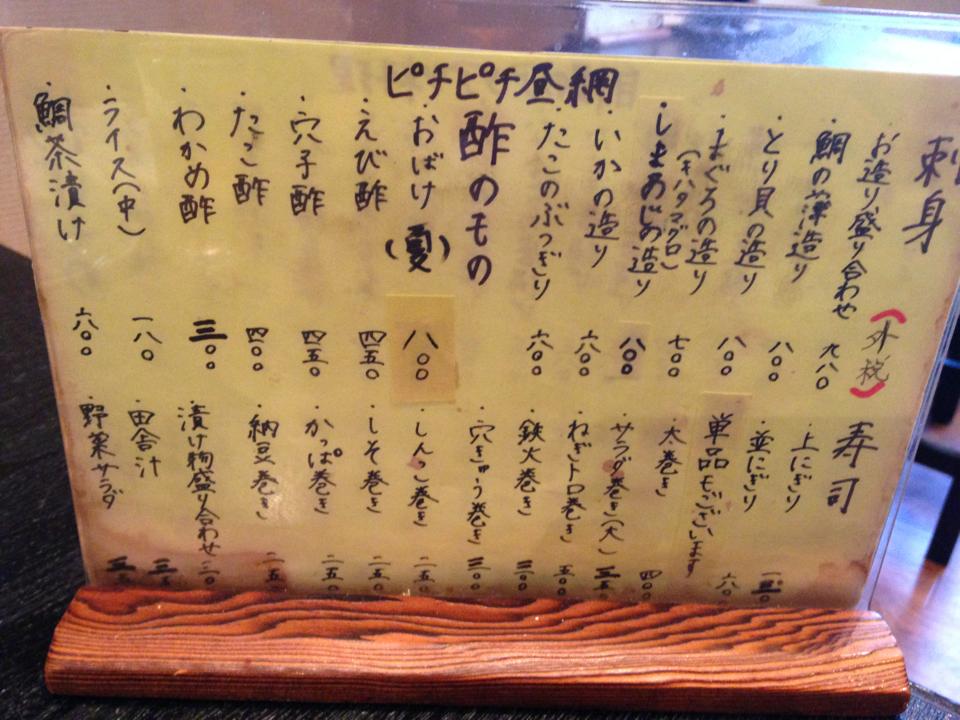 ピチピチ昼網
刺身
（外税）
お造り盛り合わせ 九八〇
・鯛の薄造り 八〇〇
・とり貝の造り 八〇〇
・まぐろの造り 七〇〇
（キハダマグロ）
・しまあじの造り 八〇〇
・いかの造り 六〇〇
・たこのぶつぎり 六〇〇
酢のもの
・おばけ（夏） 八〇〇
・えび酢 四五〇
・穴子酢 四五〇
・たこ酢 四〇〇
・わかめ酢 三〇〇
・ライス（中） 一八〇
・鯛茶漬け 六〇〇
寿司
・上にぎり
・並にぎり
単品もございます
・太巻き 四〇〇
・サラダ巻き（大）
・ねぎトロ巻き 五〇〇
・鉄火巻き 三〇〇
・穴きゅう巻き 三〇〇
・しんこ巻き 二五〇
・しそ巻き 二五〇
・かっぱ巻き 二五〇
・納豆巻き 二五〇
・漬け物盛り合わせ
・田舎汁
・野菜サラダ